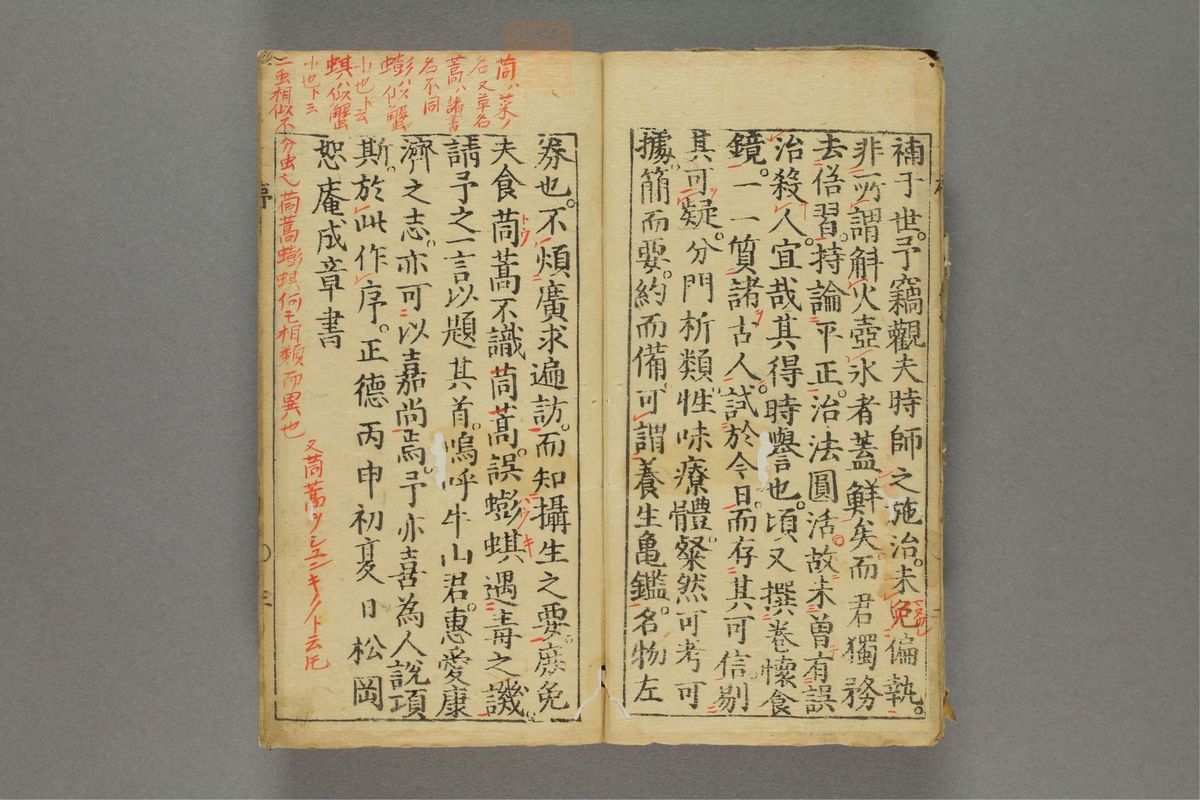 補于世。予竊觀夫時師之施治。未免偏執。
非所謂斛火壺氷者蓋鮮矣。而君獨務
去俗習。持論平正。治法圓活。故未曽有誤
治殺人。宜哉其得時譽也。頃又撰卷懷食
鏡。一一質諸古人。試於今日。而存其可信。剔
其可疑。分門析類。性味療體。粲然可考可
據。簡而要。約而備。可謂養生亀鑑。名物左
券也。不煩廣求遍訪。而知攝生之要。庶免
夫食茼蒿不識茼蒿。誤蟛蜞遇毒之譏。
請予之一言以題其首。嗚呼牛山君。惠愛康
濟之志。亦可以嘉尚焉。予亦喜為人說項
斯。於此作序。正德丙申初夏日松岡
恕庵成章書
茼ハ菜ノ
名又草名
蒿ハ諸書
名不同
蟛ハ似蟹
小也ト云
蜞ハ似蟹
小也ト云
二虫相似不分虫也茼蒿蟛蜞何モ相類而異也
又茼蒿ヲシユンキクノト云凡
トウ
ハウキ